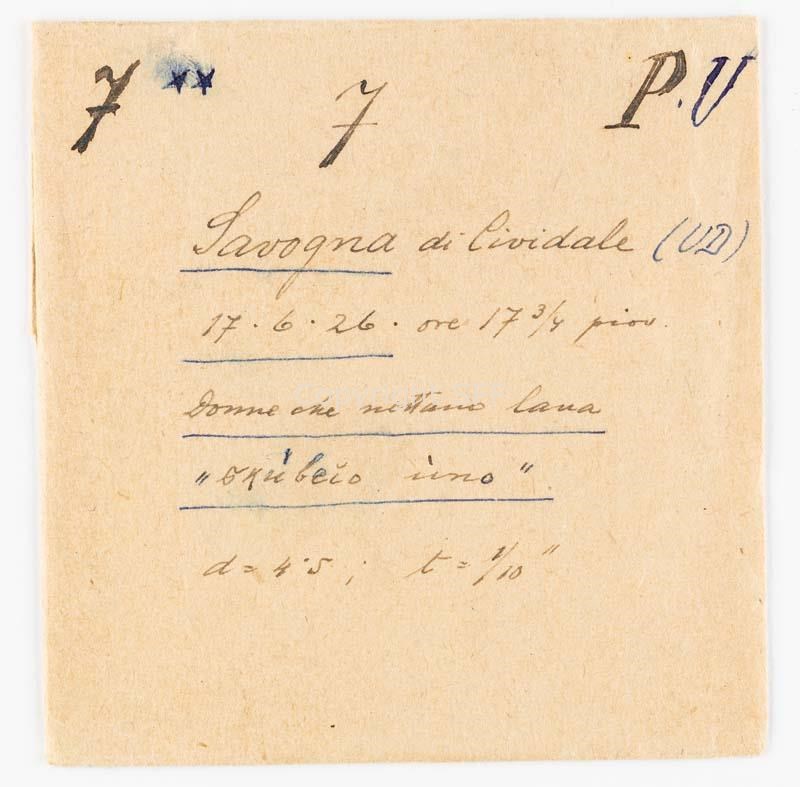 7 ** 7 P.U
Savogna di Cividale (UD)
17 · 6 · 26 · ore 17 3/4 piov.
Donne che nettano lana
„skúbeio ùno"
d = 4·5 ; t = 1/10"